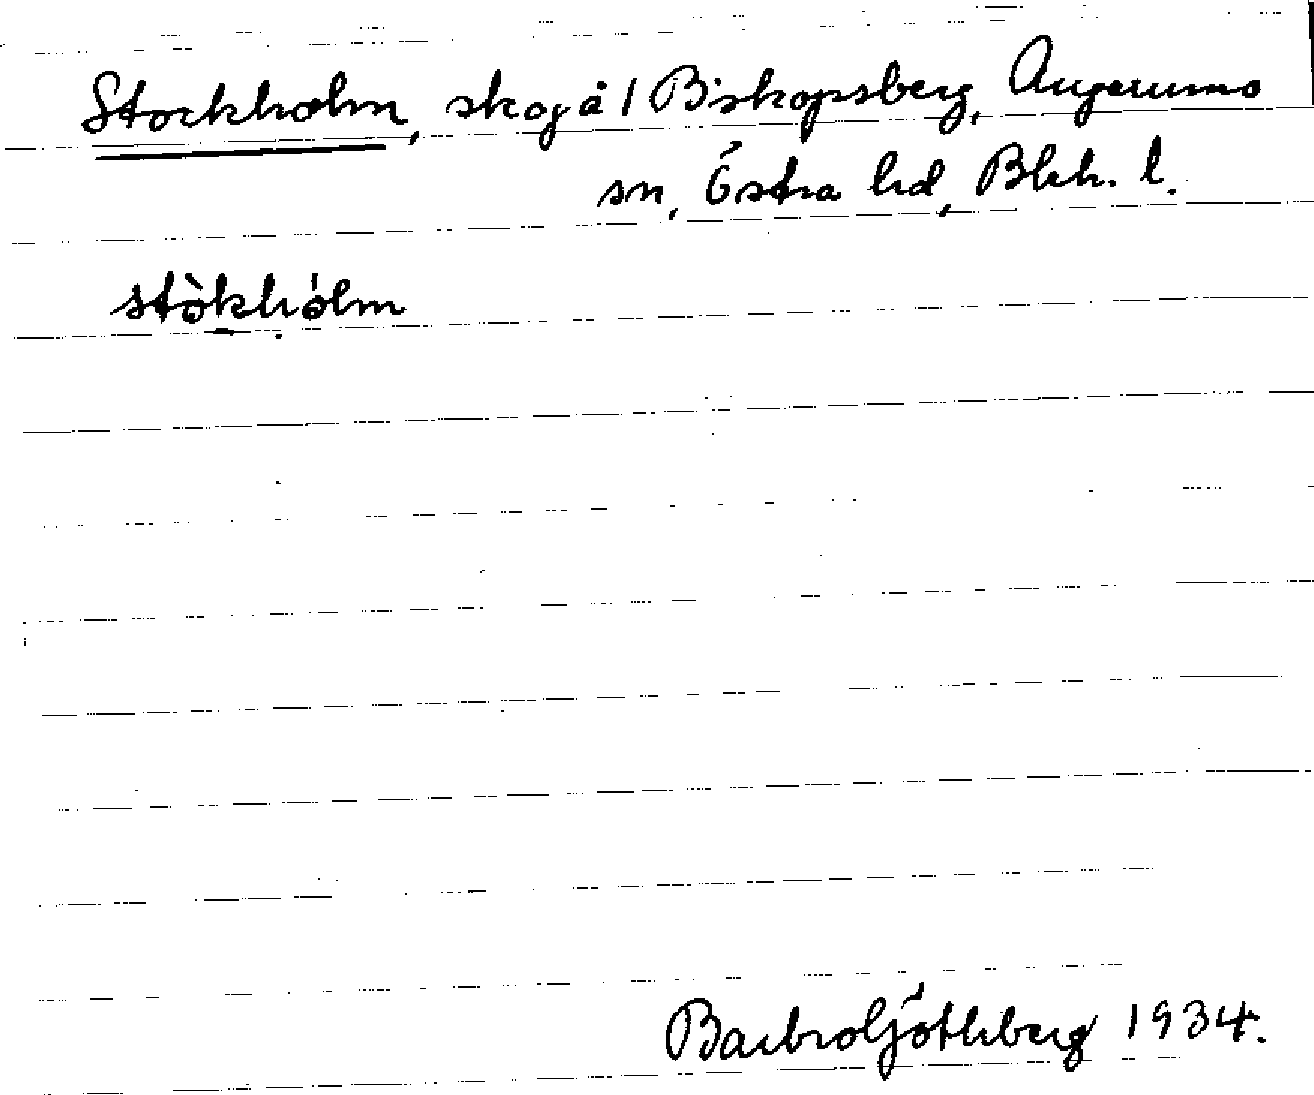 Stockholm, skog å 1 Biskopsberg, Augerums
sn, Östra hd, Blek. l.
stòkhólm
Barbro Göthberg 1934.